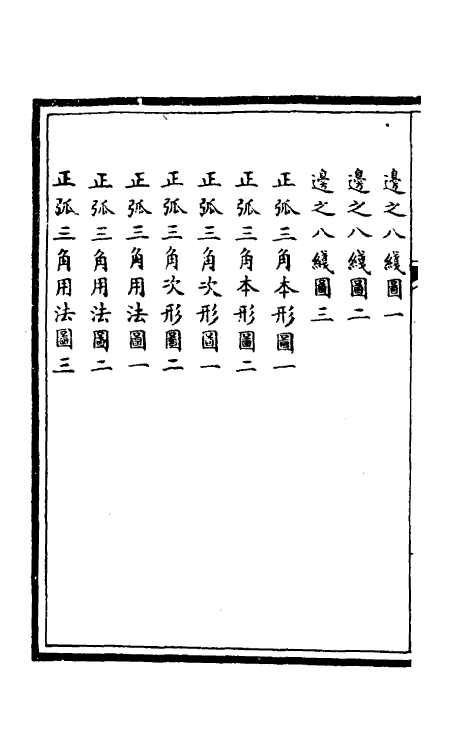 邊之八綫圖一
邊之八綫圖二
邊之八綫圖三
正弧三角本形圖一
正弧三角本形圖二
正弧三角次形圖一
正弧三角次形圖二
正弧三角用法圖一
正弧三角用法圖二
正弧三角用法圖三